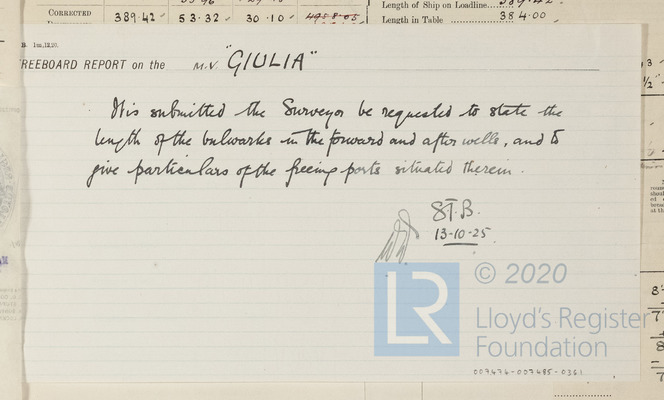 CORRECTED 389.42 53.32 30.10
Length of Ship on Loadline
Length in Table 384.00
1m,12,20.
REEBOARD REPORT on the M.V. "GIULIA"
It is submitted the Surveyor be requested to state the
length of the bulwarks in the forward and after wells, and to
give particulars of the freeing ports situated therein.
13-10-25.
© 2020
LR
Lloyd's Register
Foundation
007476-007485-0361